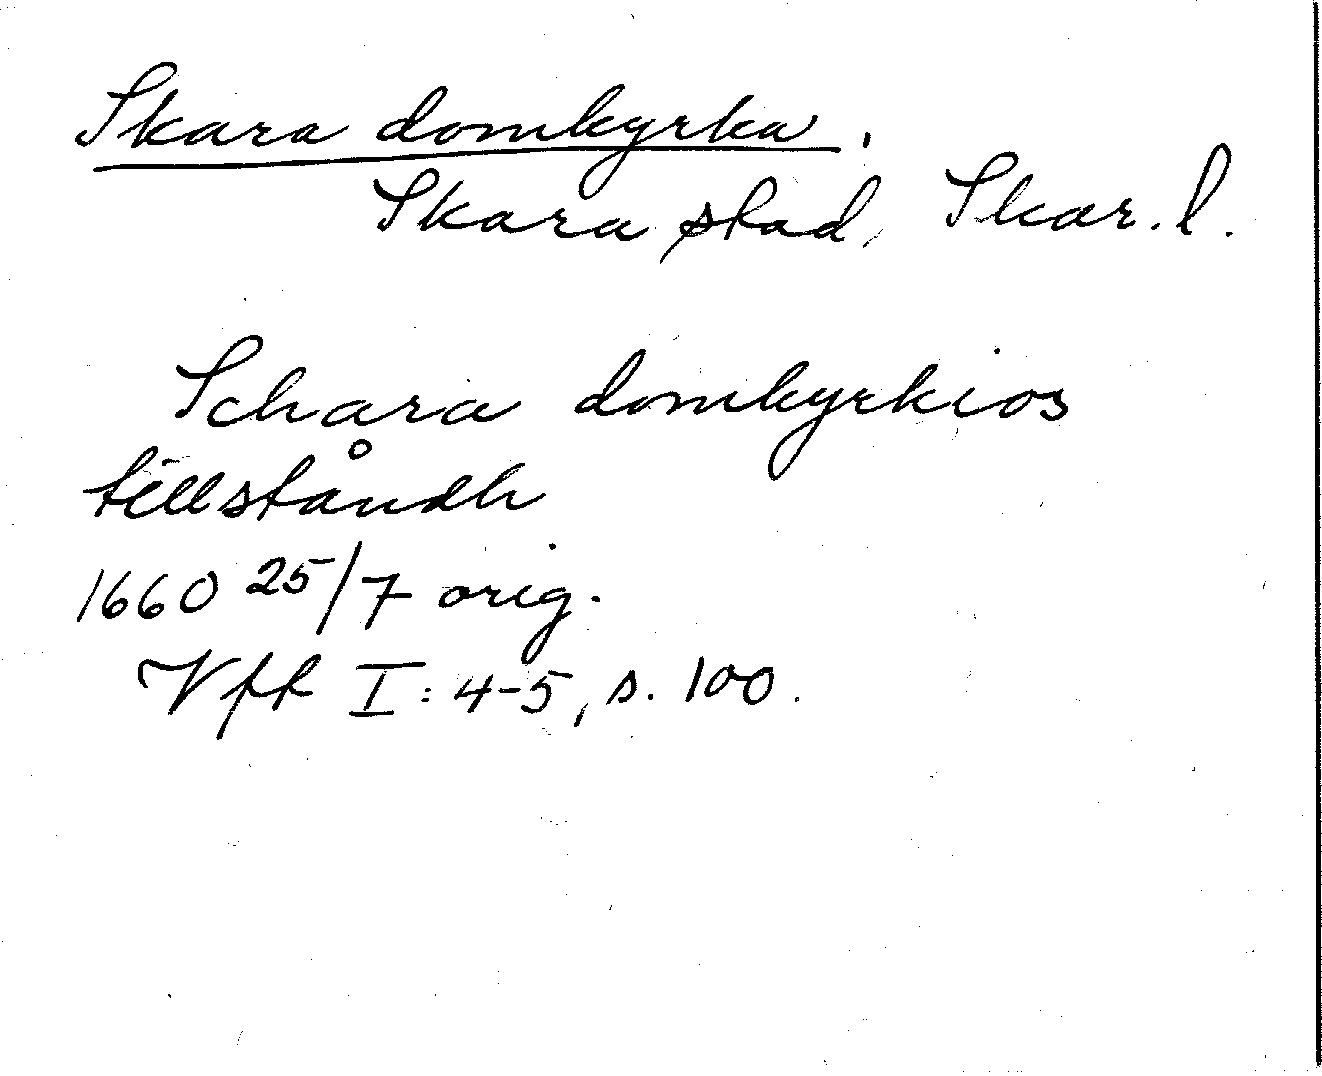 Skara domkyrka,
Skara stad, Skar. l.
Schara domkyrkios
tillståndh
1660 25/7 orig.
Vft I: 4-5, s. 100.